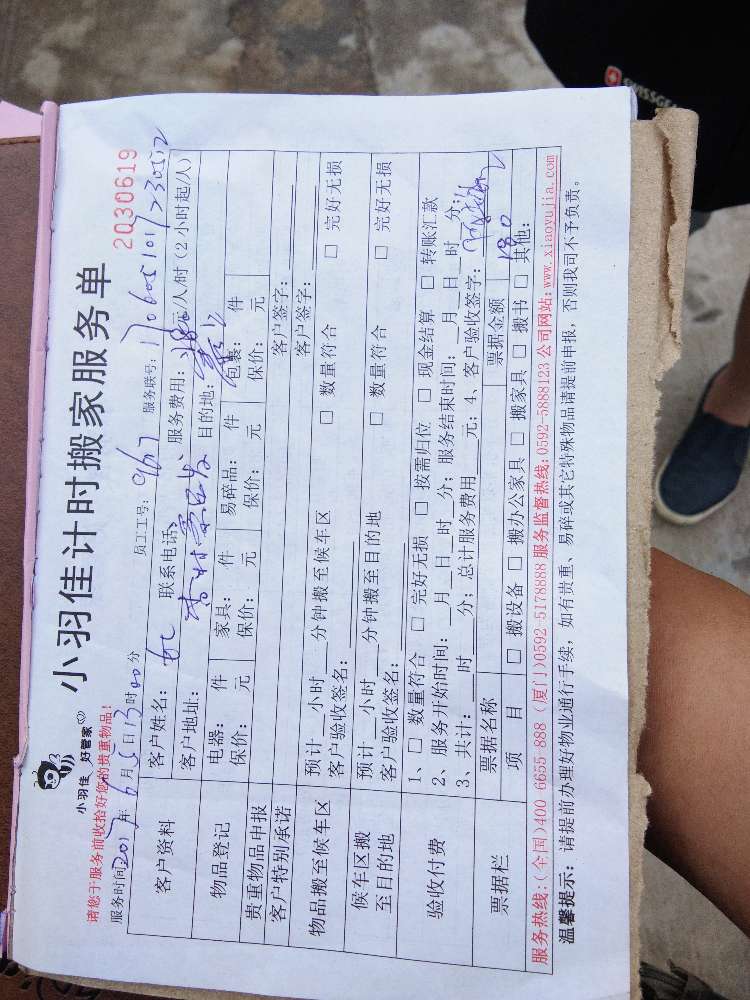 小羽佳 好管家
小羽佳计时搬家服务单
2030619
请您于服务前收拾好您的贵重物品!
服务时间2017年6月5日13时00分 员工工号: 9167 服务联号:
客户资料
客户姓名: 联系电话: 服务费用: 180元/人/时 (2小时起/人)
客户地址: 目的地:
物品登记
电器: 件 家具: 件 易碎品: 件 包裹: 件
保价: 元 保价: 元 保价: 元 保价: 元
贵重物品申报 客户签字:
客户特别承诺 客户签字:
物品搬至候车区
预计__小时__分钟搬至候车区 □ 数量符合 □ 完好无损
客户验收签名:
候车区搬至目的地
预计__小时__分钟搬至目的地 □ 数量符合 □ 完好无损
客户验收签名:
验收付费
1、□ 数量符合 □ 完好无损 □ 按需归位 □ 现金结算 □ 转账汇款
2、服务开始时间:__月__日__时__分; 服务结束时间:__月__日__时__分;
3、共计:__时__分; 总计服务费用__元; 4、客户验收签字:
票据栏
票据名称 票据金额 180
项 目 □ 搬设备 □ 搬办公家具 □ 搬家具 □ 搬书 □ 其他:
服务热线:(全国)400 6655 888 (厦门)0592-5178888 服务监督热线:0592-5888123 公司网站:www.xiaoyujia.com
温馨提示: 请提前办理好物业通行手续, 如有贵重、易碎或其它特殊物品请提前申报, 否则我司不予负责。